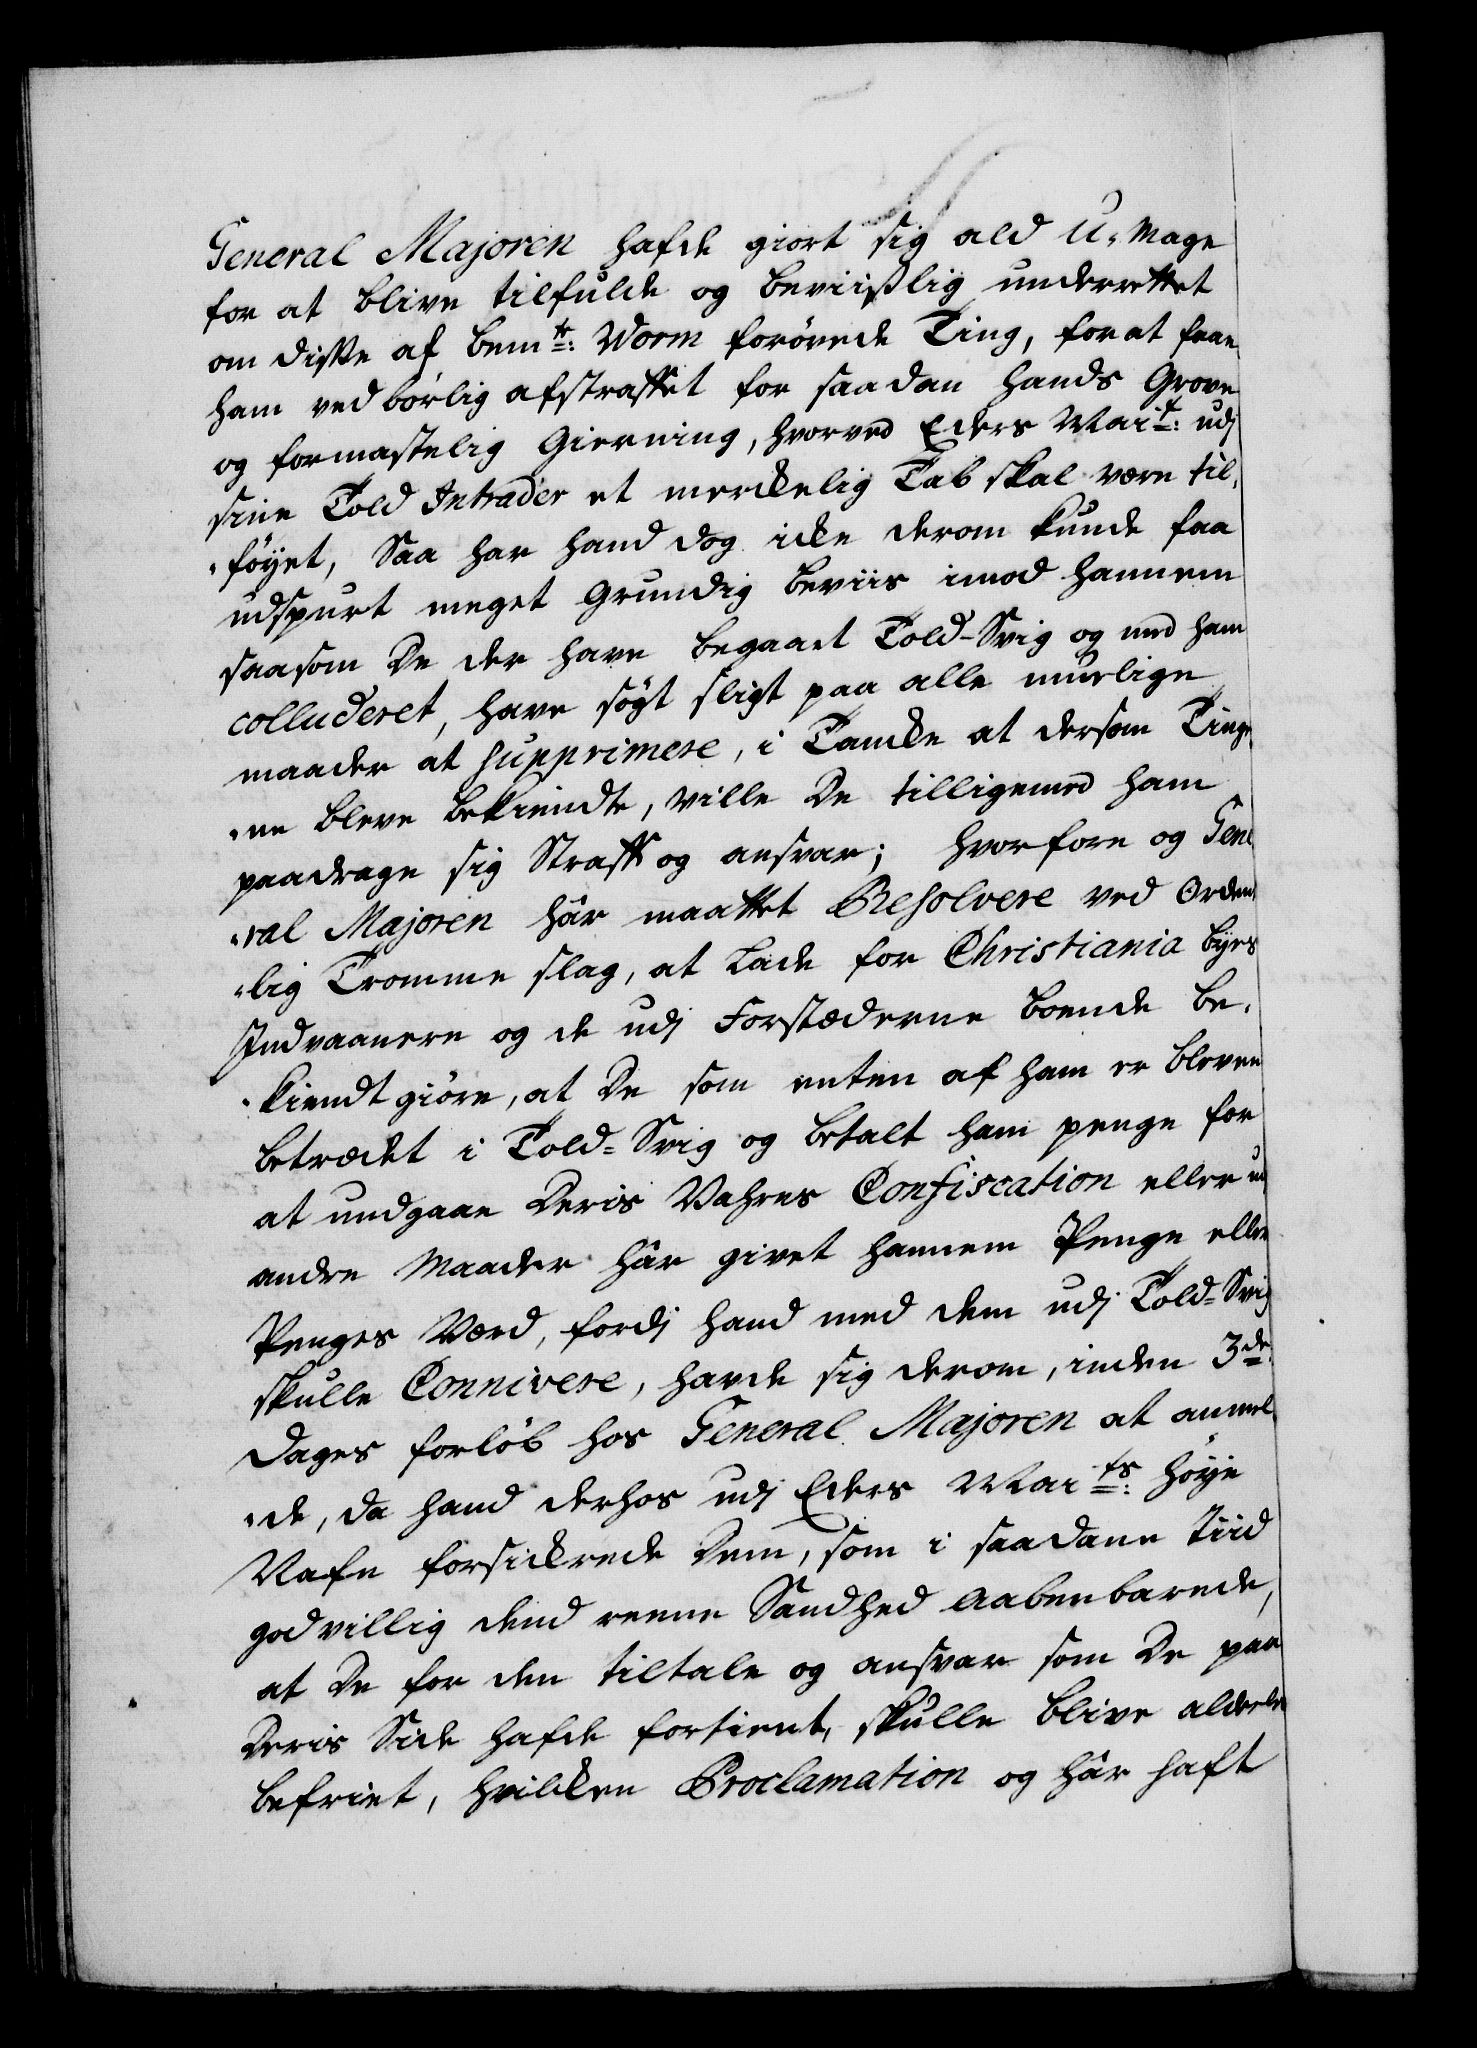 General Majoren hafde giort sig ald U-Mage
for at blive tilfulde og beviißlig underrettet
om disse af bemte: Worm forøvede Ting, for at faae
ham ved børlig afstraffet for saadan hands Grove
og formastelig Gierning, hvorved Eders Mait: udj
sine Told Intrader et merckelig Tab skal være til-
-føyet, Saa har hand dog icke derom kunde faa
udspurt meget Grundig beviis imod hannem
saasom De der have begaaet Told-Svig og med ham
colluderet, have søgt sligt paa alle muelige
maader at supprimere, i Tancke at dersom Tinge-
-ne bleve bekiendte, ville De tilligemed ham
paadrage sig Straff og ansvar; hvorfore og Gene
-ral Majoren hår maattet Resolvere ved Ordent
-lig Tromme slag, at Lade for Christiania byes
Indvaanere og de udj Forstæderne boende be-
-kiendt giøre, at De som enten af ham er bleven
betrædet i Told-Svig og betalt ham penge for
at undgaae Deris Vahres Confiscation eller ud
andre Maader hår givet hannem Penge eller
Penges Værd, fordj hand med dem udj Told-Svig
skulle Connivere, havde sig derom, inden 3de
Dages forløb hos General Majoren at anmel
-de, da hand derhos udj Eders Maits: høye
Nafn forsickrede Dem, som i saadane Tiid
godvillig dend reene Sandhed aabenbarede,
at De for den tiltale og ansvar som De paa
Deris Side hafde fortient, skulle blive aldeeles
befriet, hvilcken Proclamation og hår haft